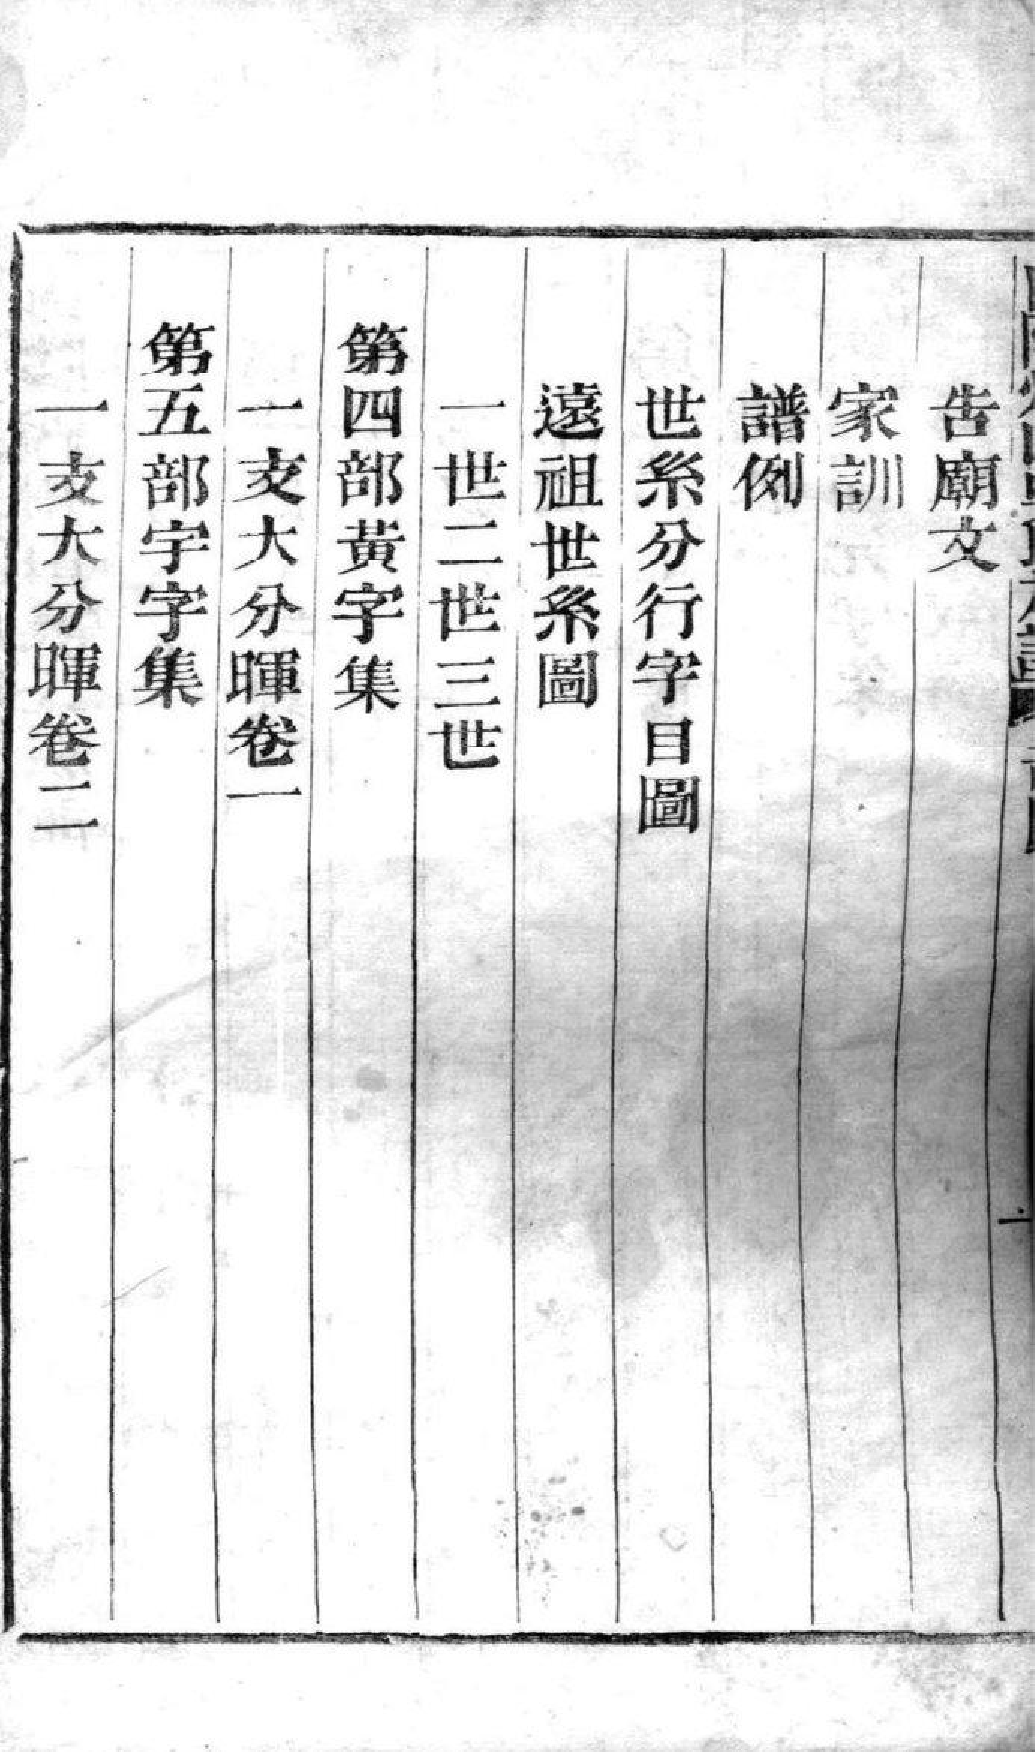 告廟文
家訓
譜例
世系分行字目圖
遠祖世系圖
一世二世三世
第四部黃字集
一支大分暉卷一
第五部宇字集
一支大分暉卷二